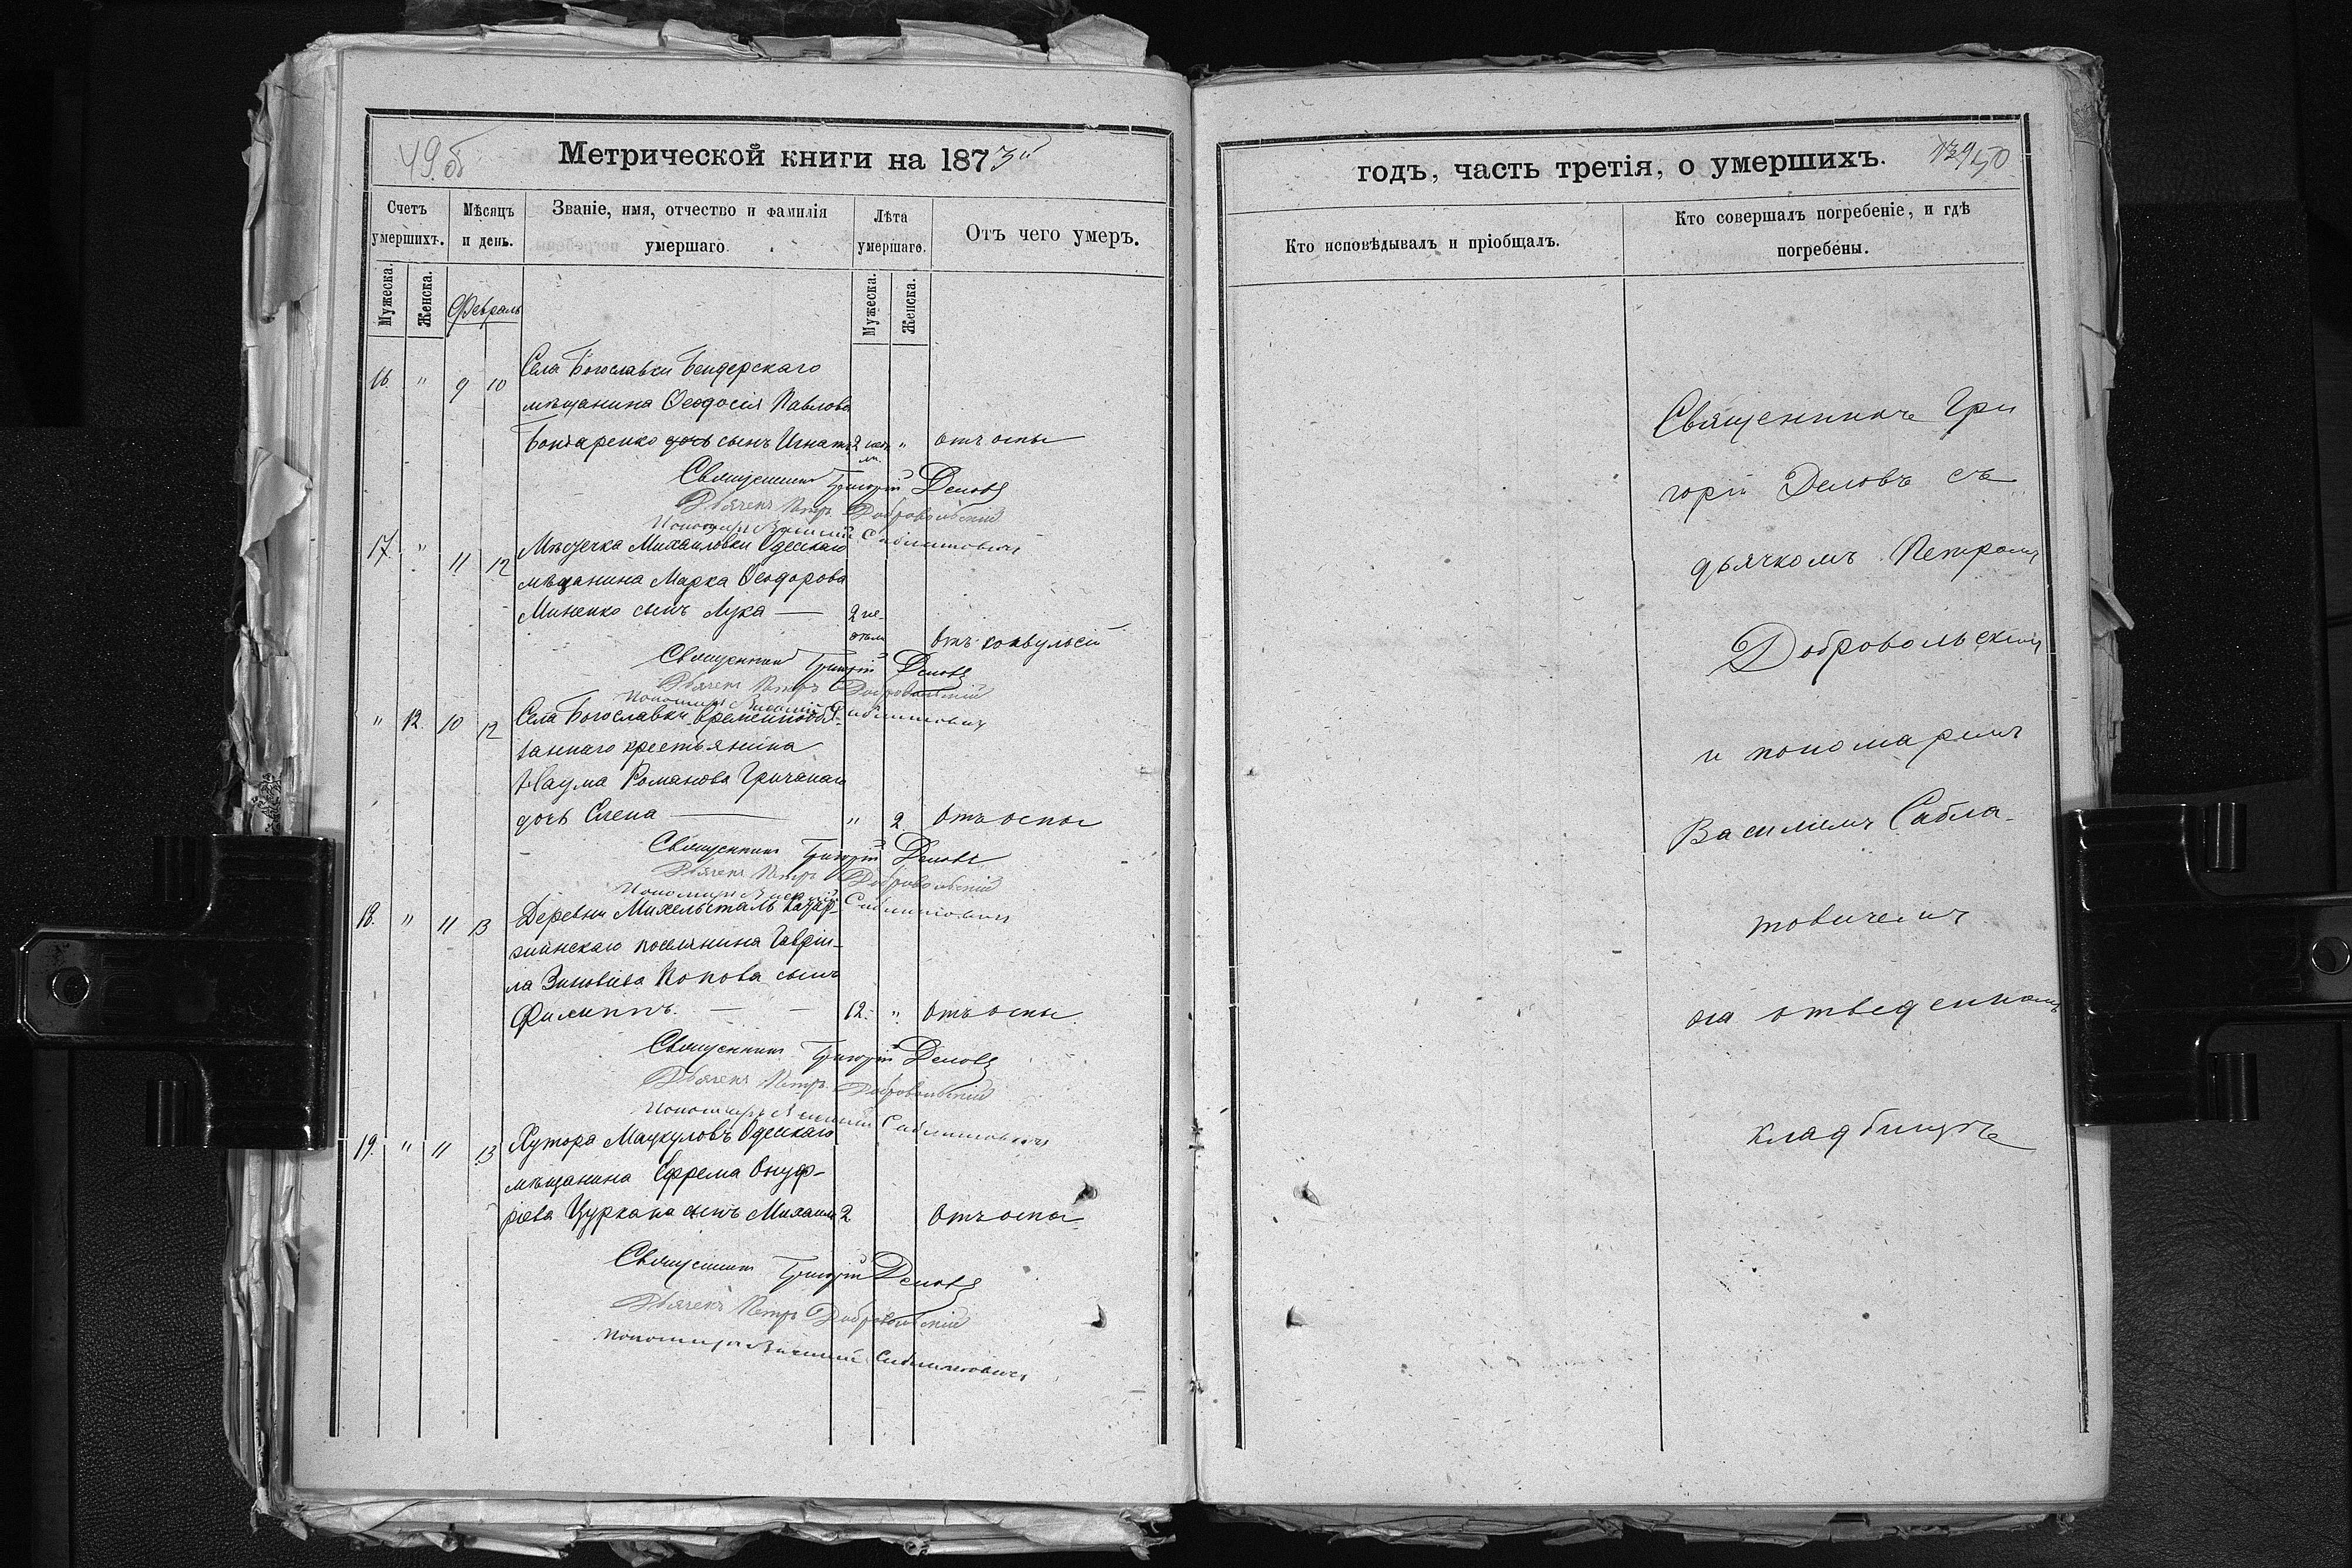 49об
Метрической книги на 1873й
Счетъ умершихъ.
Мѣсяцъ и день.
Званіе, имя, отчество и фамилія умершаго.
Лѣта умершаго.
Отъ чего умеръ.
Мужеска.
Женска.
Февраль
Мужеска.
Женска.
Села Богославки Бендерскаго
16. " 9 10
мѣщанина Ѳеодосія Павлова
Бондаренко дочь сынъ Игнатъ 2 " отъ оспы
Священникъ Григорій Деловъ
Дьячекъ Петръ Добровольскій
Пономарь Василій Саблатовичъ
17. " 11 12 Мѣстечка Михайловки Одесскаго
мѣщанина Марка Ѳеодорова
Миненко сынъ Лука — 2 не-
дѣли Отъ конвульсій
Священникъ Григорій Деловъ
Дьячекъ Петръ Добровольскій
Пономарь Василій Саблатовичъ
" 12. 10 12 Села Богославки временнообя-
заннаго крестьянина
Наума Романова Гричанаго
дочь Елена — " 2. Отъ оспы
Священникъ Григорій Деловъ
Дьячекъ Петръ Добровольскій
Пономарь Василій Саблатовичъ
18. " 11 13 Деревни Михельсталь
поселянина Гаврiи-
ла Зиновіева Попова сынъ
Филиппъ. — — 12. " Отъ оспы
Священникъ Григорій Деловъ
Дьячекъ Петръ Добровольскій
Пономарь Василій Саблатовичъ
19. " 11 13 Хутора Маукуловъ Одесскаго
мѣщанина Ефрема Онуф-
ріева Цуркана сынъ Михаилъ 2 Отъ оспы
Священникъ Григорій Деловъ
Дьячекъ Петръ Добровольскій
Пономарь Василій Саблатовичъ
годъ, часть третія, о умершихъ.
50
Кто исповѣдывалъ и пріобщалъ.
Кто совершалъ погребеніе, и гдѣ погребены.
Священникъ Гри
горій Деловъ съ
дьячкомъ Петромъ
Добровольскимъ
и пономаремъ
Василіемъ Сабла-
товичемъ
на отведенномъ
кладбищѣ